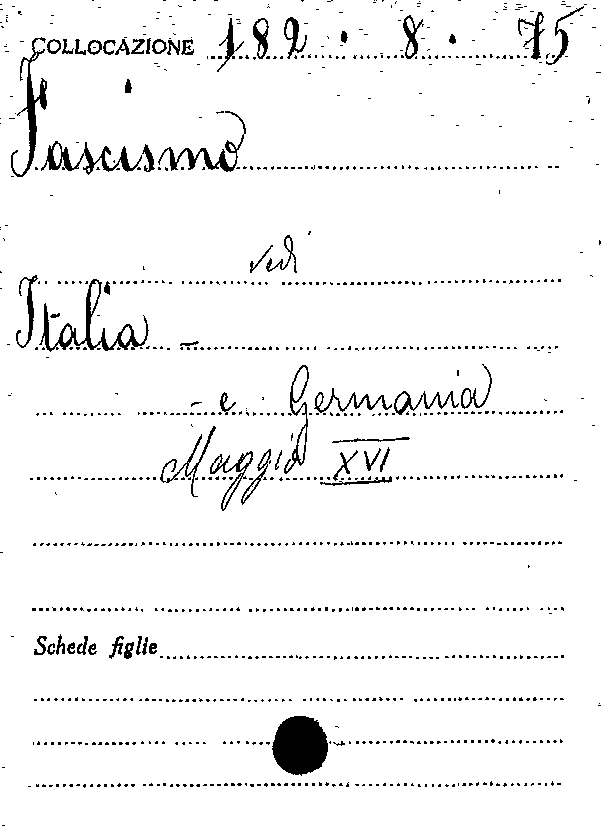 COLLOCAZIONE 182 . 8 . 75
Fascismo
vedi
Italia -
- e Germania
Maggio XVI
Schede figlie